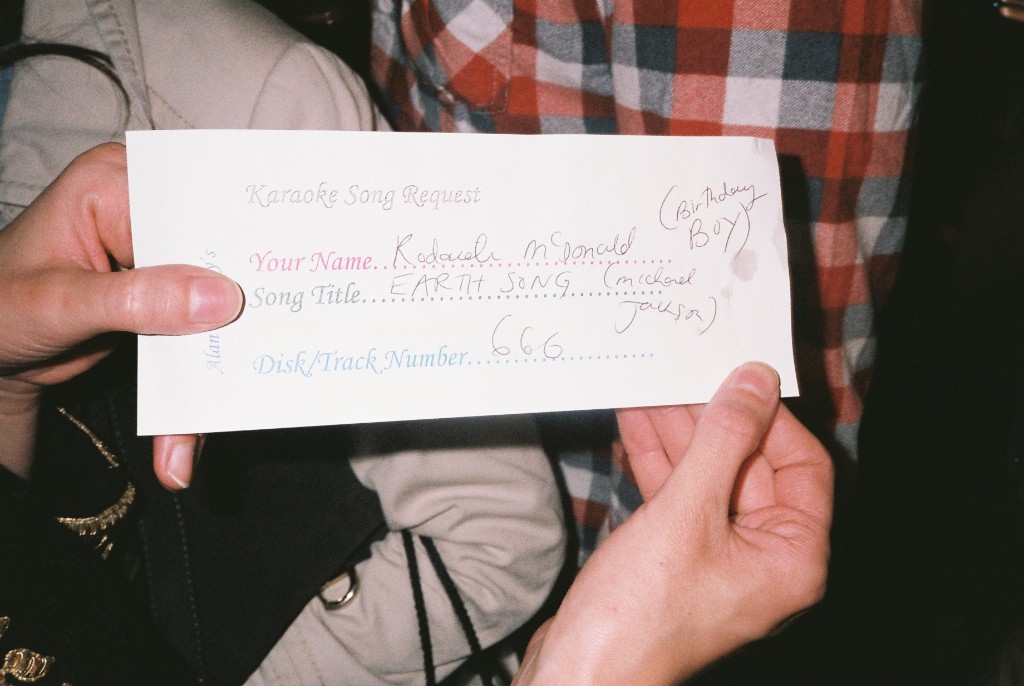 Karaoke Song Request
(Birthday
BOY)
Your Name.. McDonald
Song Title... EARTH SONG (michael
Jackson)
Disk/Track Number... 666
Alan y's